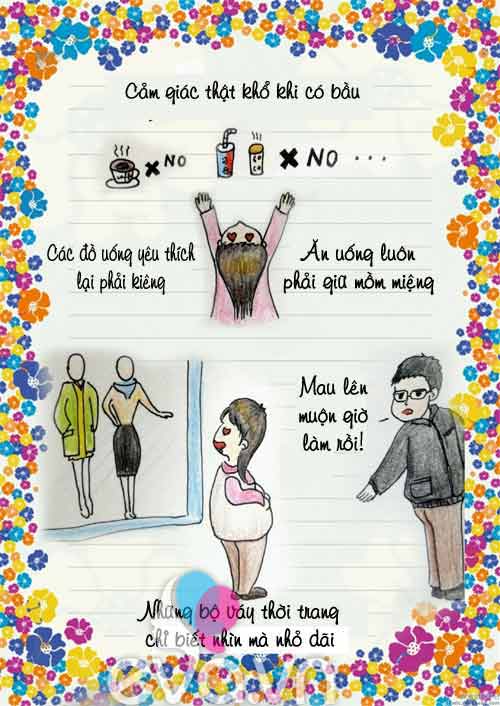 Cảm giác thật khổ khi có bầu
NO
NO ...
Các đồ uống yêu thích
lại phải kiêng
Ăn uống luôn
phải giữ mồm miệng
Mau lên
muộn giờ
làm rồi!
Những bộ váy thời trang
chỉ biết nhìn mà nhỏ dãi
eva.vn